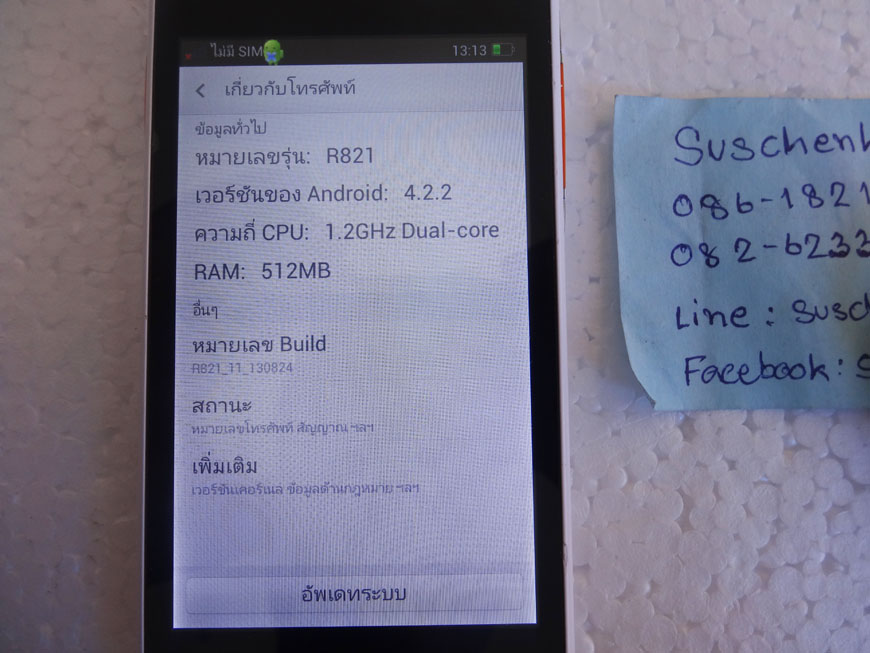 ไม่มี SIM 13:13
เกี่ยวกับโทรศัพท์
ข้อมูลทั่วไป
หมายเลขรุ่น: R821
เวอร์ชันของ Android: 4.2.2
ความถี่ CPU: 1.2GHz Dual-core
RAM: 512MB
อื่นๆ
หมายเลข Build
R821_11_130824
สถานะ
หมายเลขโทรศัพท์ สัญญาณ ฯลฯ
เพิ่มเติม
เวอร์ชันเคอร์เนล ข้อมูลด้านกฎหมาย ฯลฯ
อัพเดทระบบ
Suschenk
086-1821
082-6233
Line : susc
Facebook : s